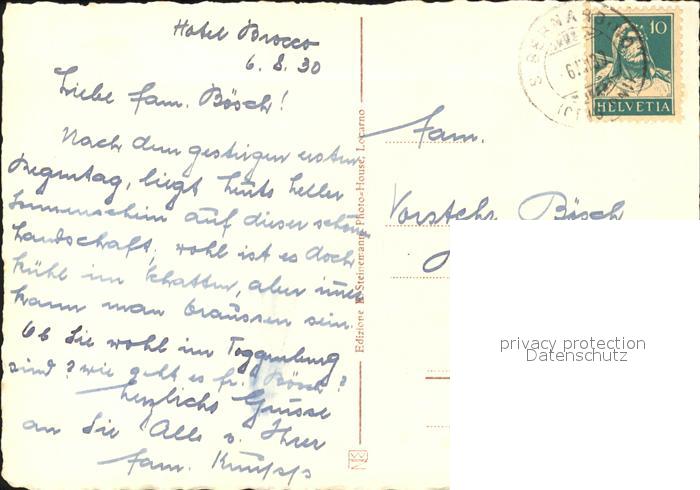 Hotel Brocco
6. 8. 30
Liebe Fam. Bösch!
Nach dem gestrigen ersten
Regentag, liegt heute heller
Sonnenschein auf dieser schönen
Landschaft, wohl ist es doch
kühl im Schatten, aber
kann man draussen sein.
Ob Sie wohl im Toggenburg
sind? wie geht es fr. Bösch?
Herzliche Grüsse
an Sie Alle v. Ihrer
Fam.
Edizione Steinemann, Photo-House, Locarno
S. BERNARDINO
10
HELVETIA
Fam.
Bösch
privacy protection
Datenschutz